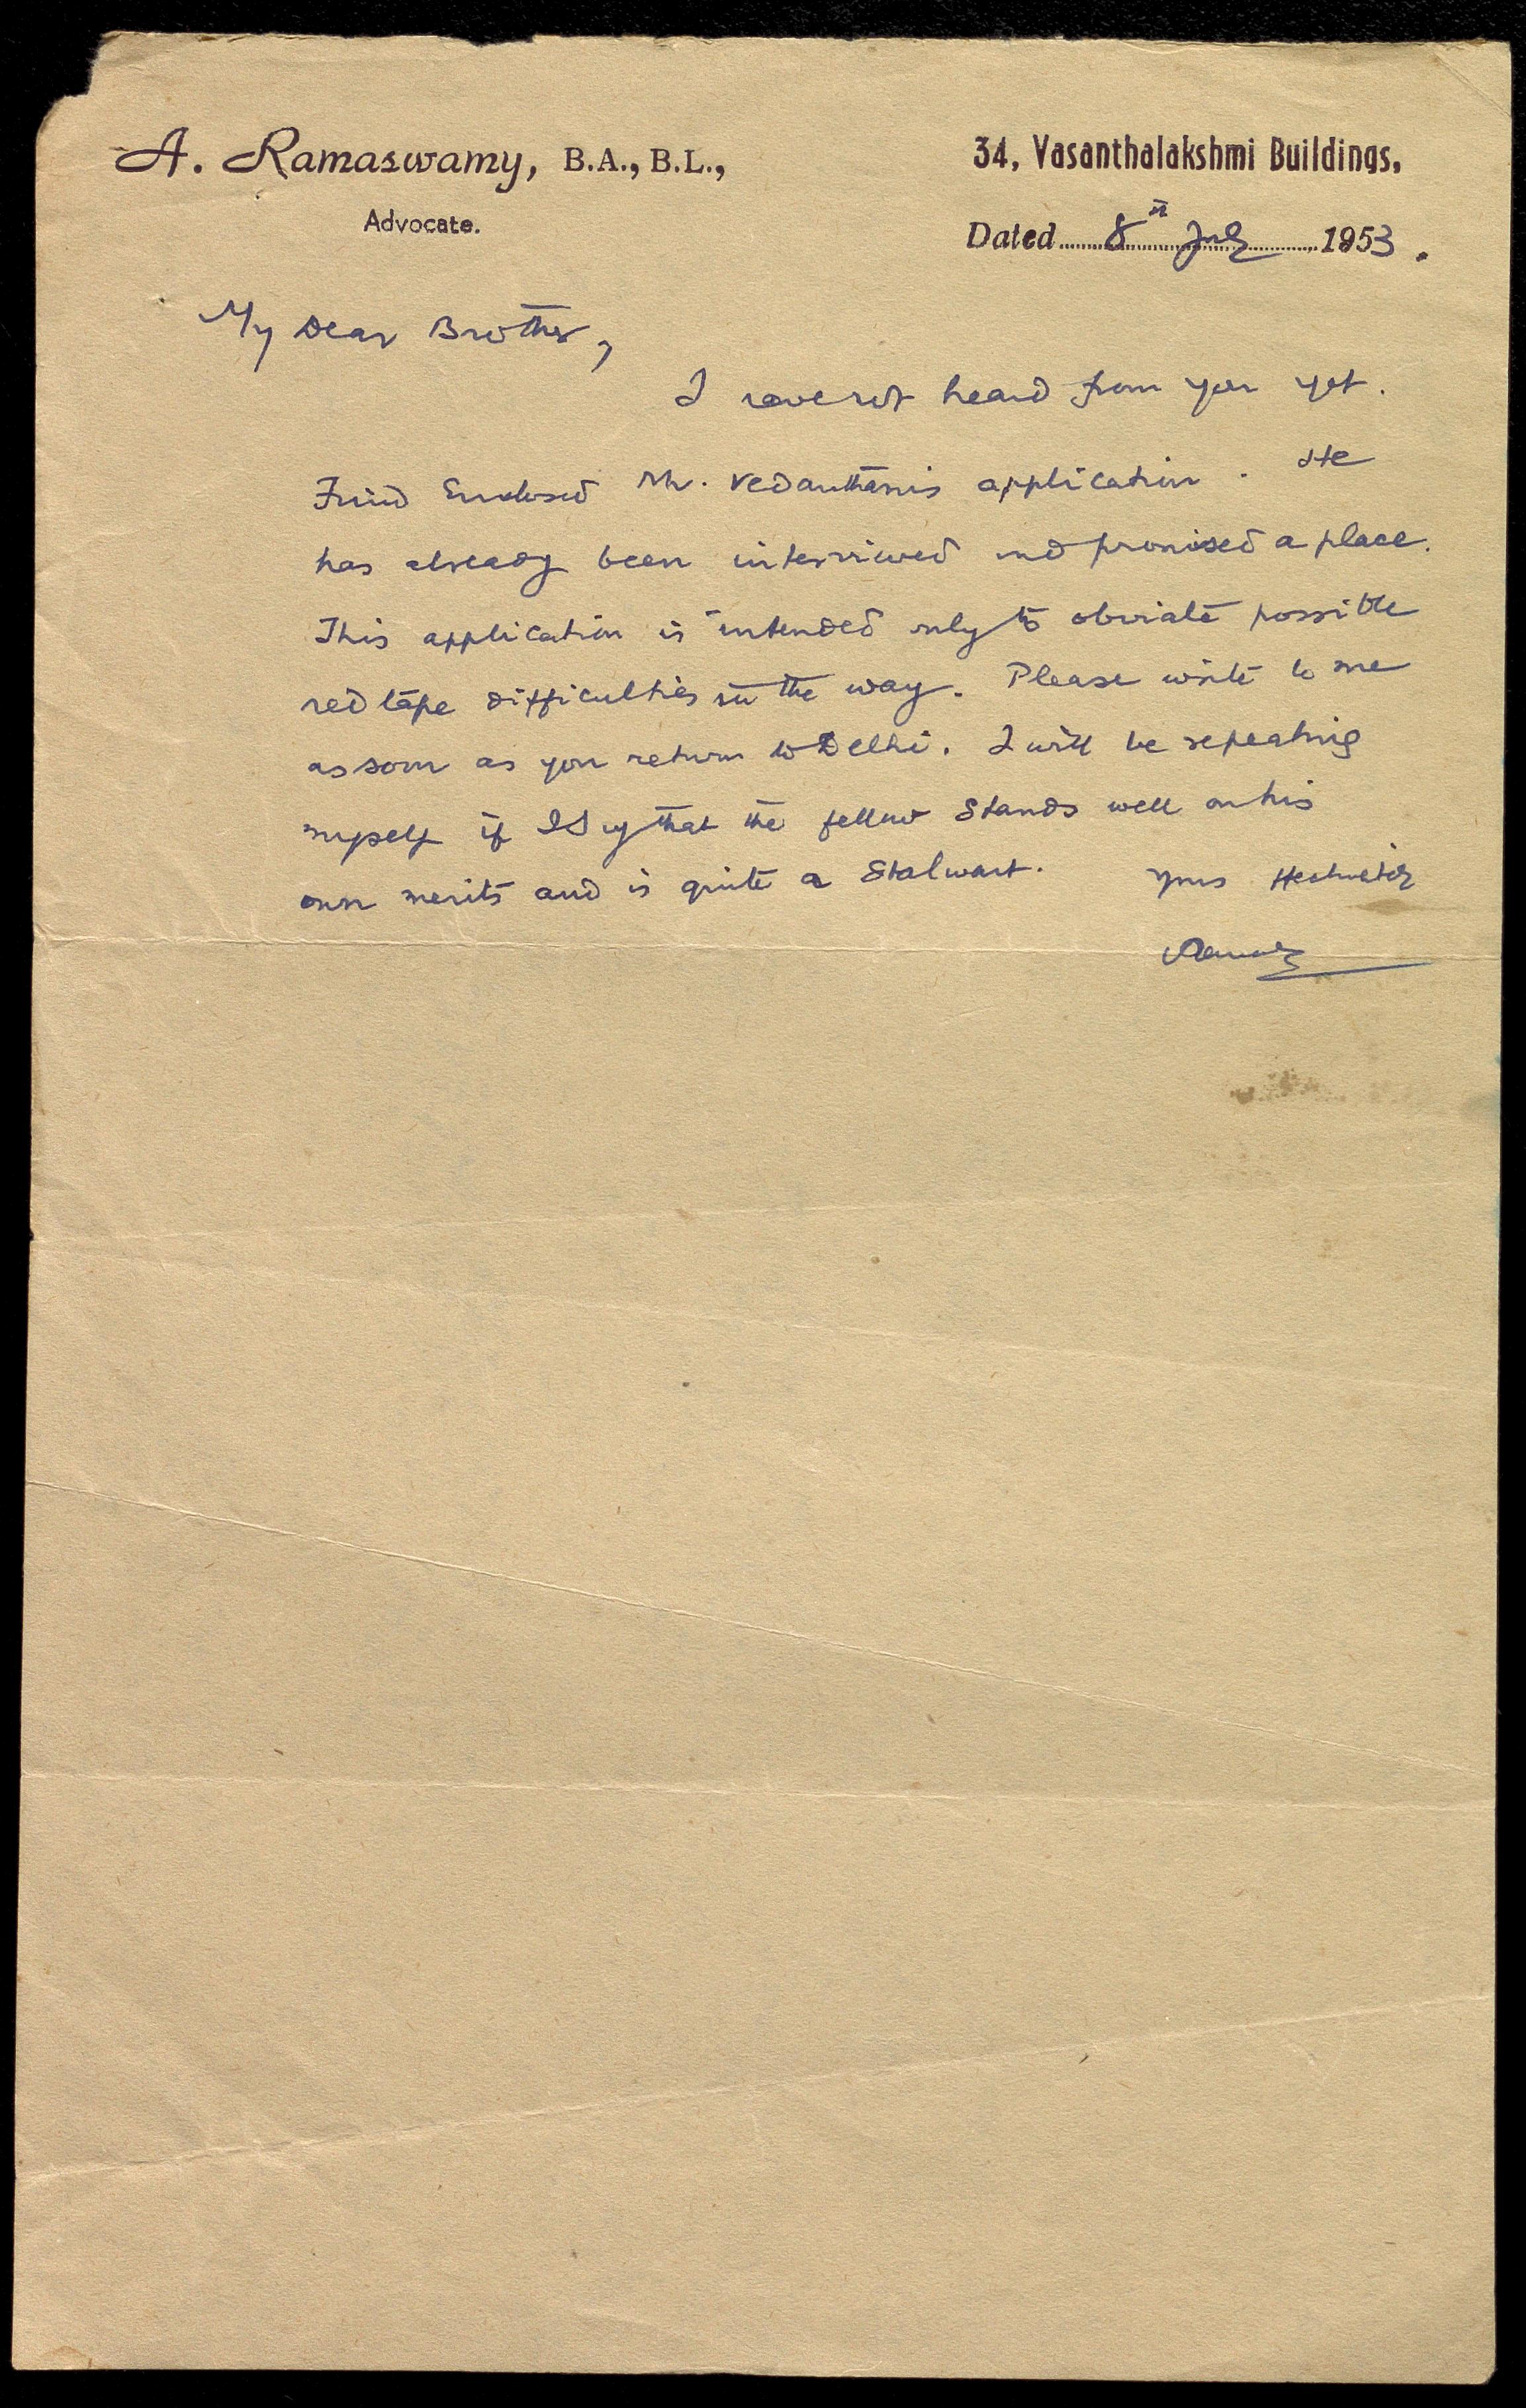 A. Ramaswamy, B.A., B.L.,
Advocate.
34, Vasanthalakshmi Buildings,
Dated 8th July 1953.
My Dear Brother,
I have not heard from you yet.
Find Enclosed Mr. Vedantham's application. He
has already been interviewed and promised a place.
This application is intended only to obviate possible
red tape difficulties in the way. Please write to me
as soon as you return to Delhi. I will be repeating
myself if I say that the fellow stands well on his
own merits and is quite a Stalwart.
Yours